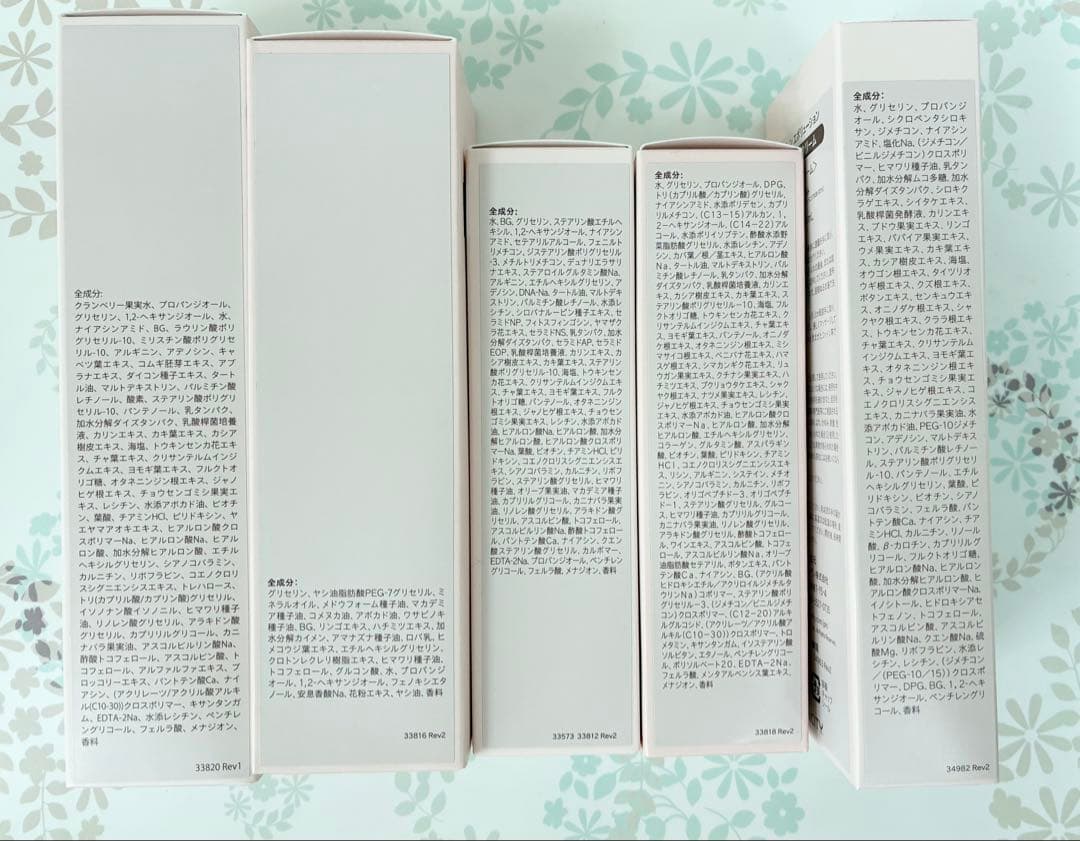 全成分:
クランベリー果実水、プロパンジオール、
グリセリン、1,2-ヘキサンジオール、水、
ナイアシンアミド、BG、ラウリン酸ポリ
グリセリル-10、ミリスチン酸ポリグリセ
リル-10、アルギニン、アデノシン、キャ
ベツ葉エキス、コムギ胚芽エキス、アブ
ラナエキス、ダイコン種子エキス、タート
ル油、マルトデキストリン、パルミチン酸
レチノール、酸素、ステアリン酸ポリグリ
セリル-10、パンテノール、乳タンパク、
加水分解ダイズタンパク、乳酸桿菌培養
液、カリンエキス、カキ葉エキス、カシア
樹皮エキス、海塩、トウキンセンカ花エキ
ス、チャ葉エキス、クリサンテルムインジ
クムエキス、ヨモギ葉エキス、フルクトオ
リゴ糖、オタネニンジン根エキス、ジャノ
ヒゲ根エキス、チョウセンゴミシ果実エ
キス、レシチン、水添アボカド油、ビオチ
ン、葉酸、チアミンHCl、ピリドキシン、ヤ
エヤマアオキエキス、ヒアルロン酸クロ
スポリマーNa、ヒアルロン酸Na、ヒアル
ロン酸、加水分解ヒアルロン酸、エチル
ヘキシルグリセリン、シアノコバラミン、
カルニチン、リボフラビン、コエノクロリ
スシグニエンシスエキス、トレハロース、
トリ(カプリル酸/カプリン酸)グリセリル、
イソノナン酸イソノニル、ヒマワリ種子
油、リノレン酸グリセリル、アラキドン酸
グリセリル、カプリリルグリコール、カニ
ナバラ果実油、アスコルビルリン酸Na、
酢酸トコフェロール、アスコルビン酸、ト
コフェロール、アルファルファエキス、ブ
ロッコリーエキス、パントテン酸Ca、ナイ
アシン、(アクリレーツ/アクリル酸アルキ
ル(C10-30))クロスポリマー、キサンタンガ
ム、EDTA-2Na、水添レシチン、ペンチレ
ングリコール、フェルラ酸、メナジオン、
香料
33820 Rev1
全成分:
グリセリン、ヤシ油脂肪酸PEG-7グリセリル、ミ
ネラルオイル、メドウフォーム種子油、マカデミ
ア種子油、コメヌカ油、アボカド油、ワサビノキ
種子油、BG、リンゴエキス、ハチミツエキス、加
水分解カイメン、アマナズナ種子油、ロバ乳、ヒ
メコウジ葉エキス、エチルヘキシルグリセリン、
クロトンレクレリ樹脂エキス、ヒマワリ種子油、
トコフェロール、グルコン酸、水、プロパンジ
オール、1,2-ヘキサンジオール、フェノキシエタ
ノール、安息香酸Na、花粉エキス、ヤシ油、香料
33816 Rev2
全成分:
水、BG、グリセリン、ステアリン酸エチルヘ
キシル、1,2-ヘキサンジオール、ナイアシン
アミド、セテアリルアルコール、フェニルト
リメチコン、ジステアリン酸ポリグリセリル
-3、メチルトリメチコン、デュナリエラサリ
ナエキス、ステアロイルグルタミン酸Na、
アルギニン、エチルヘキシルグリセリン、ア
デノシン、DNA-Na、タートル油、マルトデキ
ストリン、パルミチン酸レチノール、水添レ
シチン、シロバナルーピン種子エキス、セ
ラミドNP、フィトスフィンゴシン、ヤマザク
ラ花エキス、セラミドNS、乳タンパク、加水
分解ダイズタンパク、セラミドAP、セラミド
EOP、乳酸桿菌培養液、カリンエキス、カ
シア樹皮エキス、カキ葉エキス、ステアリン
酸ポリグリセリル-10、海塩、トウキンセン
カ花エキス、クリサンテルムインジクムエキ
ス、チャ葉エキス、ヨモギ葉エキス、フルク
トオリゴ糖、パンテノール、オタネニンジン
根エキス、ジャノヒゲ根エキス、チョウセン
ゴミシ果実エキス、レシチン、水添アボカド
油、ヒアルロン酸Na、ヒアルロン酸、加水分
解ヒアルロン酸、ヒアルロン酸クロスポリ
マーNa、葉酸、ビオチン、チアミンHCl、ピリ
ドキシン、コエノクロリスシグニエンシスエキ
ス、シアノコバラミン、カルニチン、リボフラ
ビン、ステアリン酸グリセリル、ヒマワリ種
子油、オリーブ果実油、マカデミア種子
油、カプリリルグリコール、カニナバラ果実
油、リノレン酸グリセリル、アラキドン酸グ
リセリル、アスコルビン酸、トコフェロール、
アスコルビルリン酸Na、酢酸トコフェロー
ル、パントテン酸Ca、ナイアシン、クエン
酸ステアリン酸グリセリル、カルボマー、
EDTA-2Na、プロパンジオール、ペンチレン
グリコール、フェルラ酸、メナジオン、香料
33573 33812 Rev2
全成分:
水、グリセリン、プロパンジオール、DPG、
トリ(カプリル酸/カプリン酸)グリセリル、
ナイアシンアミド、水添ポリデセン、カプリ
リルメチコン、(C13-15)アルカン、1,
2-ヘキサンジオール、(C14-22)アル
コール、水添ポリイソブテン、酢酸水添野
菜脂肪酸グリセリル、水添レシチン、アデノ
シン、カバ葉/根/茎エキス、ヒアルロン酸
Na、タートル油、マルトデキストリン、パル
ミチン酸レチノール、乳タンパク、加水分解
ダイズタンパク、乳酸桿菌培養液、カリンエ
キス、カシア樹皮エキス、カキ葉エキス、ス
テアリン酸ポリグリセリル-10、海塩、フル
クトオリゴ糖、トウキンセンカ花エキス、ク
リサンテルムインジクムエキス、チャ葉エキ
ス、ヨモギ葉エキス、パンテノール、オニノダ
ケ根エキス、オタネニンジン根エキス、ミシ
マサイコ根エキス、ベニバナ花エキス、ハマ
スゲ根エキス、シマカンギク花エキス、リュ
ウガン果実エキス、クチナシ果実エキス、ハ
チミツエキス、ブクリョウタケエキス、シャク
ヤク根エキス、ナツメ果実エキス、レシチン、
ジャノヒゲ根エキス、チョウセンゴミシ果実
エキス、水添アボカド油、ヒアルロン酸クロス
ポリマーNa、ヒアルロン酸、加水分解
ヒアルロン酸、エチルヘキシルグリセリン、
コラーゲン、グルタミン酸、アスパラギン
酸、ビオチン、葉酸、ピリドキシン、チアミン
HCl、コエノクロリスシグニエンシスエキ
ス、リシン、アルギニン、システイン、メチオ
ニン、シアノコバラミン、カルニチン、リボフ
ラビン、オリゴペプチド-3、オリゴペプチ
ド-1、ステアリン酸グリセリル、グルコー
ス、ヒマワリ種子油、カプリリルグリコール、
カニナバラ果実油、リノレン酸グリセリル、
アラキドン酸グリセリル、酢酸トコフェロー
ル、ワインエキス、アスコルビン酸、トコフェ
ロール、アスコルビルリン酸Na、オリーブ
油脂肪酸セテアリル、ボタンエキス、パント
テン酸Ca、ナイアシン、BG、(アクリル酸
ヒドロキシエチル/アクリロイルジメチルタ
ウリンNa)コポリマー、ステアリン酸ポリグ
リセリル-3、(ジメチコン/ビニルジメチコ
ン)クロスポリマー、(C12-20)アルキ
ルグルコシド、(アクリレーツ/アクリル酸ア
ルキル(C10-30))クロスポリマー、トロ
メタミン、キサンタンガム、イソステアリン酸
ソルビタン、エタノール、ペンチレングリコー
ル、ポリソルベート20、EDTA-2Na、
フェルラ酸、メンタアルベンシス葉エキス、
メナジオン、香料
33818 Rev2
全成分:
水、グリセリン、プロパンジ
オール、シクロペンタシロキ
サン、ジメチコン、ナイアシン
アミド、塩化Na、(ジメチコン/
ビニルジメチコン)クロスポリ
マー、ヒマワリ種子油、乳タン
パク、加水分解ムコ多糖、加水
分解ダイズタンパク、シロキク
ラゲエキス、シイタケエキス、
乳酸桿菌発酵液、カリンエキ
ス、ブドウ果実エキス、リンゴ
エキス、パパイア果実エキス、
ウメ果実エキス、カキ葉エキ
ス、カシア樹皮エキス、海塩、
オウゴン根エキス、タイツリオ
ウギエキス、クズ根エキス、
ボタンエキス、センキュウエキ
ス、オニノダケ根エキス、シャ
クヤク根エキス、クララ根エキ
ス、トウキンセンカ花エキス、
チャ葉エキス、クリサンテルム
インジクムエキス、ヨモギ葉エ
キス、オタネニンジン根エキ
ス、チョウセンゴミシ果実エ
キス、ジャノヒゲ根エキス、コ
エノクロリスシグニエンシスエ
キス、カニナバラ果実油、水
添アボカド油、PEG-10ジメチ
コン、アデノシン、マルトデキス
トリン、パルミチン酸レチノー
ル、ステアリン酸ポリグリセリ
ル-10、パンテノール、エチル
ヘキシルグリセリン、葉酸、ピ
リドキシン、ビオチン、シアノ
コバラミン、フェルラ酸、パン
トテン酸Ca、ナイアシン、チア
ミンHCl、カルニチン、リノール
酸、β-カロチン、カプリリルグリ
コール、フルクトオリゴ糖、ヒ
アルロン酸Na、ヒアルロン酸、
加水分解ヒアルロン酸、ヒア
ルロン酸クロスポリマーNa、
イノシトール、ヒドロキシアセ
トフェノン、トコフェロール、
アスコルビン酸、アスコルビ
ルリン酸Na、クエン酸Na、硫
酸Mg、リボフラビン、水添レ
シチン、レシチン、(ジメチコン
/(PEG-10/15))クロスポリ
マー、DPG、BG、1,2-ヘキ
サンジオール、ペンチレングリ
コール、香料
34982 Rev2